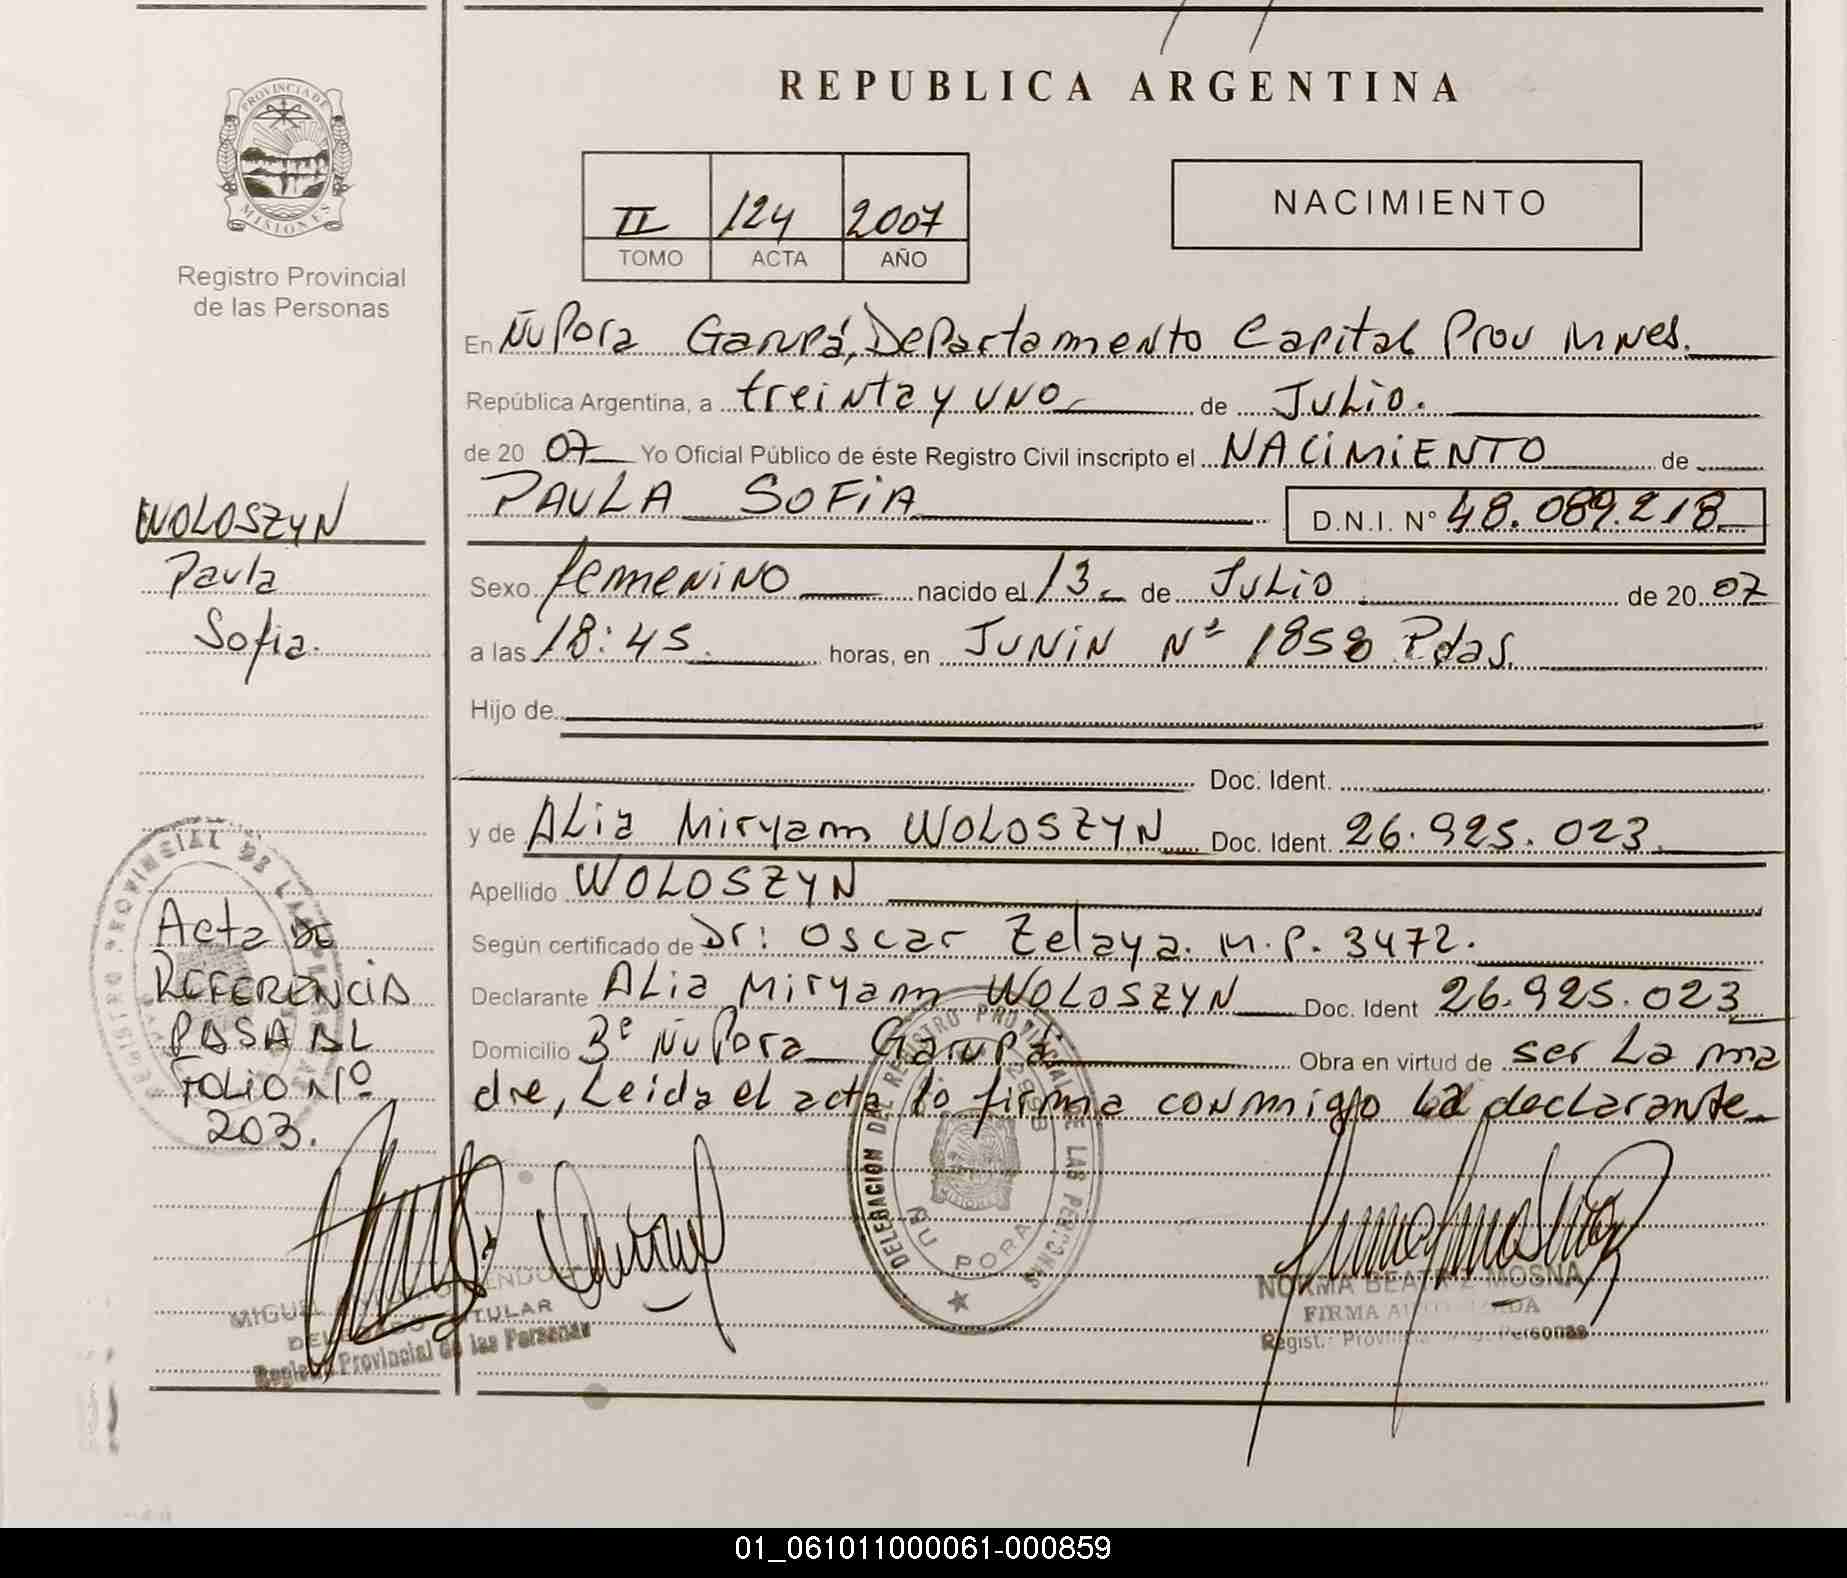 REPUBLICA ARGENTINA
PROVINCIA DE
MISIONES
Registro Provincial
de las Personas
II 124 2007
TOMO ACTA AÑO
NACIMIENTO
En Ñu Pora Garupá, Departamento Capital Prov Mnes.
República Argentina, a treinta y uno de Julio.
de 20 07 Yo Oficial Público de éste Registro Civil inscripto el NACIMIENTO de
PAULA SOFIA D.N.I. N° 48.089.218
WOLOSZYN
Paula
Sofia.
Sexo femenino nacido el 13 de Julio de 20 07
a las 18:45. horas, en JUNIN Nº 1858 Pdas.
Hijo de
Doc. Ident.
y de ALia Miryam WOLOSZYN Doc. Ident. 26.925.023
Apellido WOLOSZYN
Según certificado de Dr: Oscar Zelaya. M.P. 3472.
Declarante ALia Miryam WOLOSZYN Doc. Ident 26.925.023
Domicilio 3º Ñu Pora Garupá Obra en virtud de ser La ma
dre, Leida el acta lo firma conmigo la declarante
Acta de
REFERENCIA
PASA AL
FOLIO Nº
203.
REGISTRO PROVINCIAL DE LAS PERSONAS
DELEGACION DEL REGISTRO PROVINCIAL DE LAS PERSONAS
ÑU PORA
MISIONES
MIGUEL
TITULAR
Provincial de las Personas
NORMA BEATRIZ MOSNA
FIRMA AUTORIZADA
Regist. Provincial Personas
01_061011000061-000859